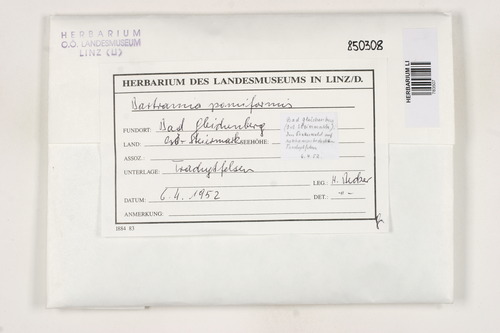 HERBARIUM
O.Ö. LANDESMUSEUM
LINZ (U)
850308
HERBARIUM LI
HERBARIUM DES LANDESMUSEUMS IN LINZ/D.
Bartramia pomiformis
FUNDORT: Bad Gleichenberg
LAND: Ost-Steiermark SEEHÖHE:
ASSOZ.
UNTERLAGE: Trachytfelsen
LEG.: H. Becker
DATUM: 6.4.1952
DET.: -"-
ANMERKUNG:
1884 83
Bad Gleichenberg
(Ost-Steiermark).
Trachytfelsen
6.4.52